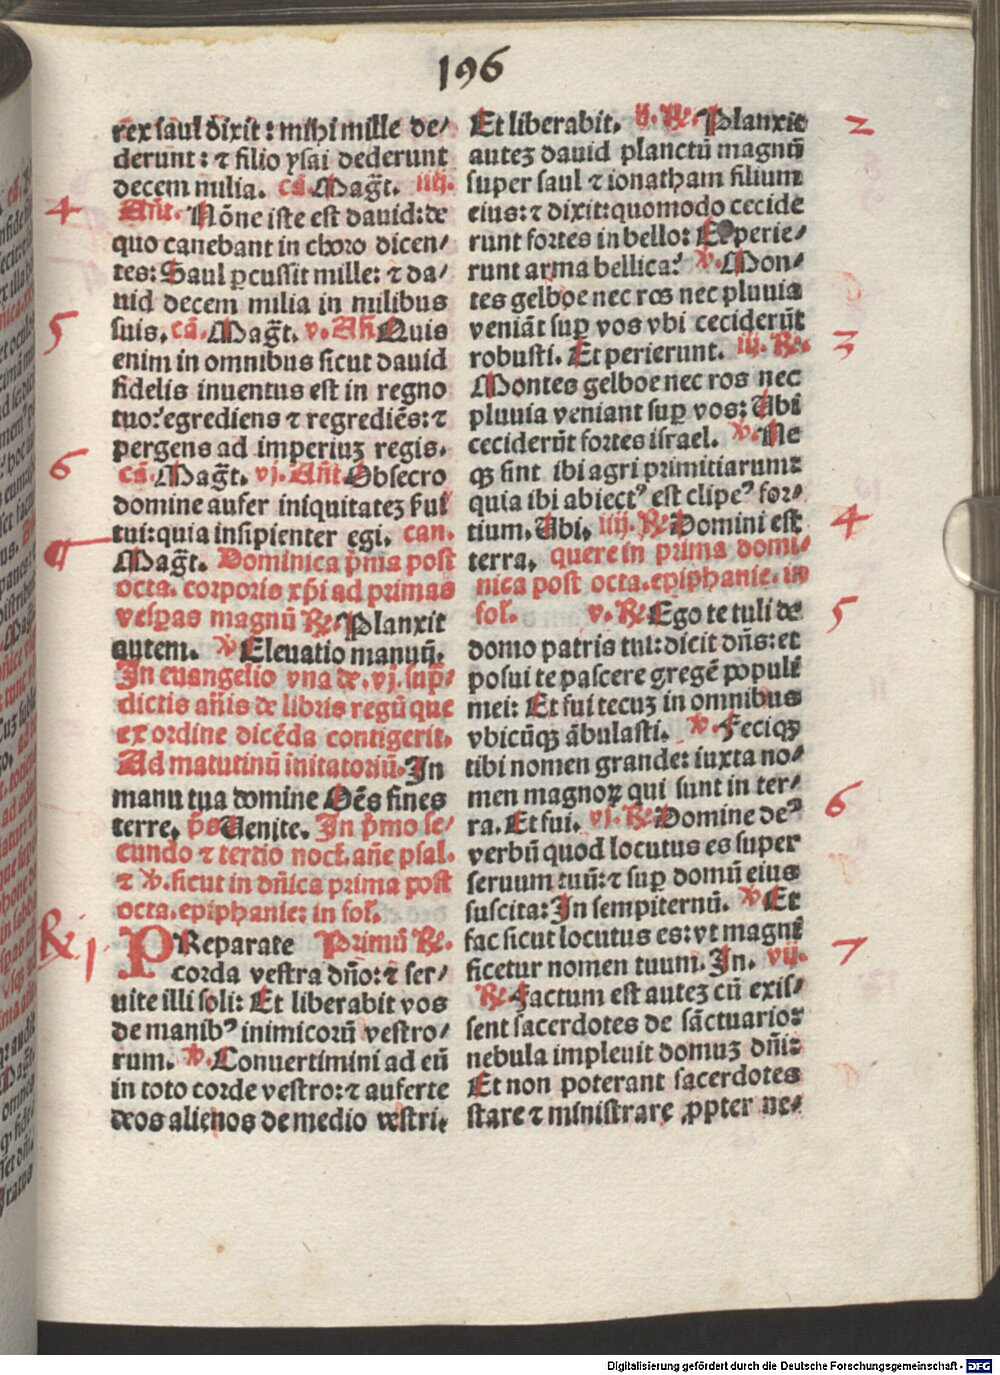 196
rex saul dixit: mihi mille de/
derunt: ⁊ filio ysai dederunt
decem milia. cã. Mag̃t. iiij.
4
Añt. Nõne iste est dauid: de
quo canebant in choro dicen/
tes: Saul ꝑcussit mille: ⁊ da/
uid decem milia in milibus
5
suis. cã. Mag̃t. v. Añ Quis
enim in omnibus sicut dauid
fidelis inuentus est in regno
tuo: egrediens ⁊ regrediẽs: ⁊
pergens ad imperiuꝫ regis.
6
cã. Mag̃t. vj. Añt Obsecro
domine aufer iniquitateꝫ ẜui
tui: quia insipienter egi. can.
Mag̃t. Dominica p̃ma post
octa. corporis xp̃i ad primas
vesꝑas magnũ R̷. Planxit
autem. V̷ Eleuatio manuũ.
In euangelio vna de. vj. sup̃
dictis añis de libris regũ que
ex ordine dicẽda contigerit.
Ad matutinũ inuitatoriũ. In
manu tua domine Oẽs fines
terre. p̃s Uenite. In p̃mo se/
cundo ⁊ tertio noct. añe psal.
⁊ V̷. sicut in dñica prima post
octa. epiphanie: in fol.
R̷ 1
PReparate Primũ R̷.
corda vestra dño: ⁊ ser/
uite illi soli: Et liberabit vos
de manibꝰ inimicorũ vestro/
rum. V̷. Conuertimini ad eũ
in toto corde vestro: ⁊ auferte
deos alienos de medio vestri.
Et liberabit. ij. R̷. Planxit
2
auteꝫ dauid planctũ magnũ
super saul ⁊ ionatham filium
eius: ⁊ dixit: quomodo cecide
runt fortes in bello: Et perie/
runt arma bellica: V̷. Mon/
tes gelboe nec ros nec pluuia
veniãt suꝑ vos vbi ceciderũt
robusti. Et perierunt. iij. R̷.
3
Montes gelboe nec ros nec
pluuia veniant suꝑ vos: Ubi
ceciderũt fortes israel. V̷. Ne
qꝫ sint ibi agri primitiarum:
quia ibi abiectꝰ est clipeꝰ for/
tium. Ubi. iiij. R̷. Domini est
4
terra. quere in prima domi/
nica post octa. epiphanie. in
fol. v. R̷. Ego te tuli de
5
domo patris tui: dicit dñs: et
posui te pascere gregẽ populi
mei: Et fui tecuꝫ in omnibus
vbicũqꝫ ãbulasti. V̷. Feciqꝫ
tibi nomen grande: iuxta no/
men magnoꝝ qui sunt in ter/
6
ra. Et fui. vj. R̷. Domine deꝰ
verbũ quod locutus es super
seruum tuũ: ⁊ suꝑ domũ eius
suscita: In sempiternũ. V̷ Et
fac sicut locutus es: vt magni
ficetur nomen tuum. In. vij.
7
R̷. Factum est auteꝫ cũ exis/
sent sacerdotes de sãctuario:
nebula impleuit domuꝫ dñi:
Et non poterant sacerdotes
stare ⁊ ministrare ꝓpter ne/
Digitalisierung gefördert durch die Deutsche Forschungsgemeinschaft - DFG